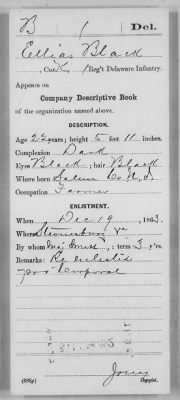 B 1 Del.
Ellias Black
, Co. K, 1 Reg't Delaware Infantry.
Appears on
Company Descriptive Book
of the organization named above.
DESCRIPTION.
Age 22 years; height 5 feet 11 inches.
Complexion Dark
Eyes Black; hair Black
Where born Salem Co N. J.
Occupation Farmer
ENLISTMENT.
When Dec 19, 1863.
Where Stevensburg Va
By whom ; term 3 y'rs.
Remarks: Re enlisted
Corporal
(383g) Copyist.